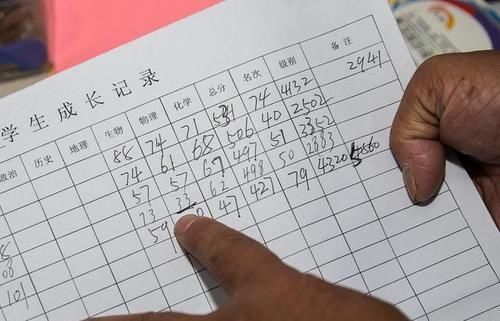 学生成长记录
政治 历史 地理 生物 物理 化学 总分 名次 级别 备注
88 74 71 74 4132 2941
74 61 68 526 40 2502
57 57 67 497 51 3352
73 33 62 498 50 2883
59 47 42 79 4320
08
101